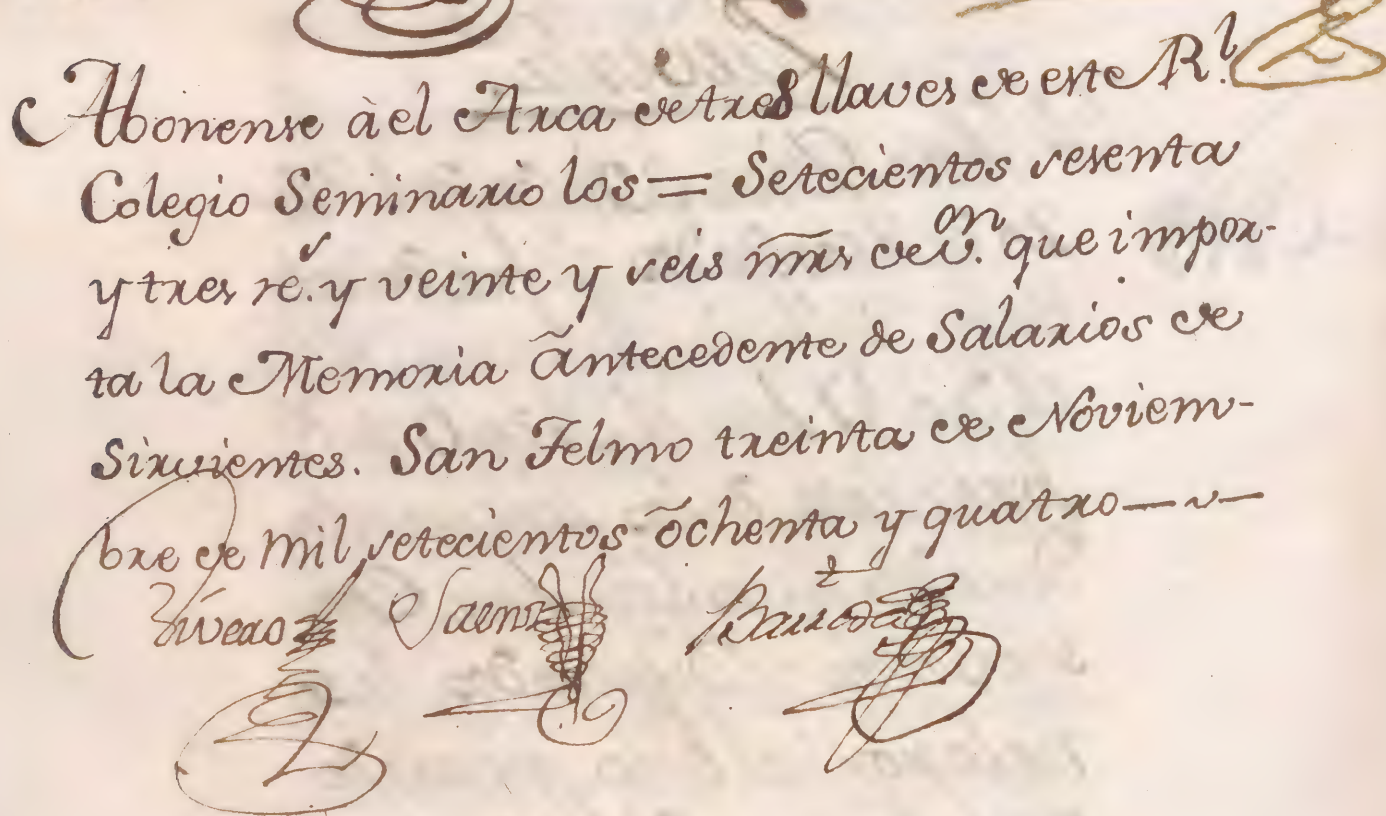 Abonense à el Arca de tres llaves de este R.l
Colegio Seminario los = Setecientos sesenta
y tres rs. y veinte y seis mrs de v.on que impor-
ta la Memoria antecedente de Salarios de
Sirvientes. San Telmo treinta de Noviem-
bre de mil setecientos ochenta y quatro
Vivero Saenz Barreda